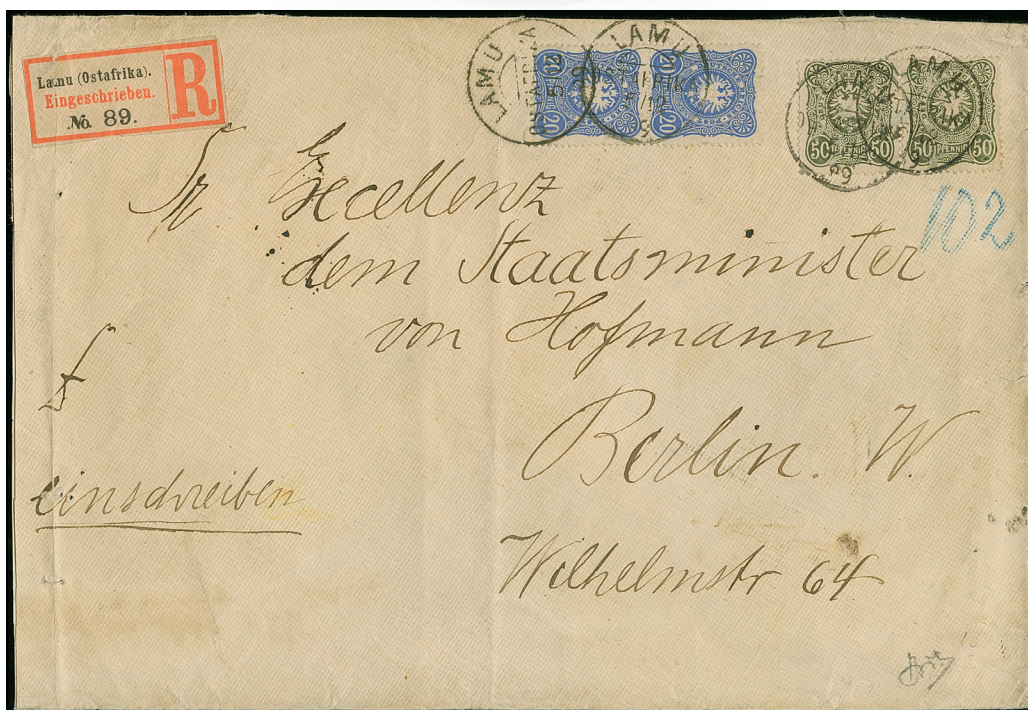 Lamu (Ostafrika).
Eingeschrieben.
No. 89.
R
LAMU
OSTAFRIKA
LAMU
OSTAFRIKA
20
20
20
20
50 PFENNIG 50
50 PFENNIG 50
89
102
Sr. Excellenz
dem Staatsminister
von Hofmann
Berlin. W.
Wilhelmstr 64
einschreiben